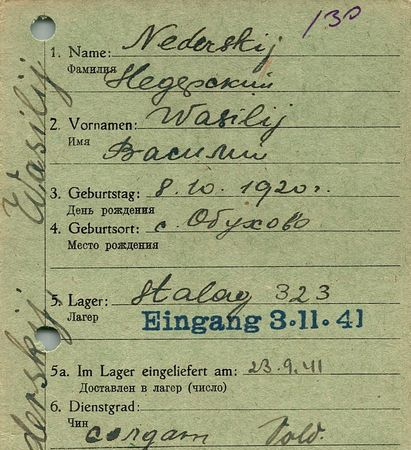 130
1. Name: Nederskij
Фамилия
Недерский
2. Vornamen: Wasilij
Имя
Василий
3. Geburtstag: 8.10.1920 г.
День рождения
4. Geburtsort: с. Обухово
Место рождения
5. Lager: Stalag 323
Лагер
Eingang 3.11.41
5a. Im Lager eingeliefert am: 23.9.41
Доставлен в лагер (число)
6. Dienstgrad:
Чин
солдат Sold.
Wasilij